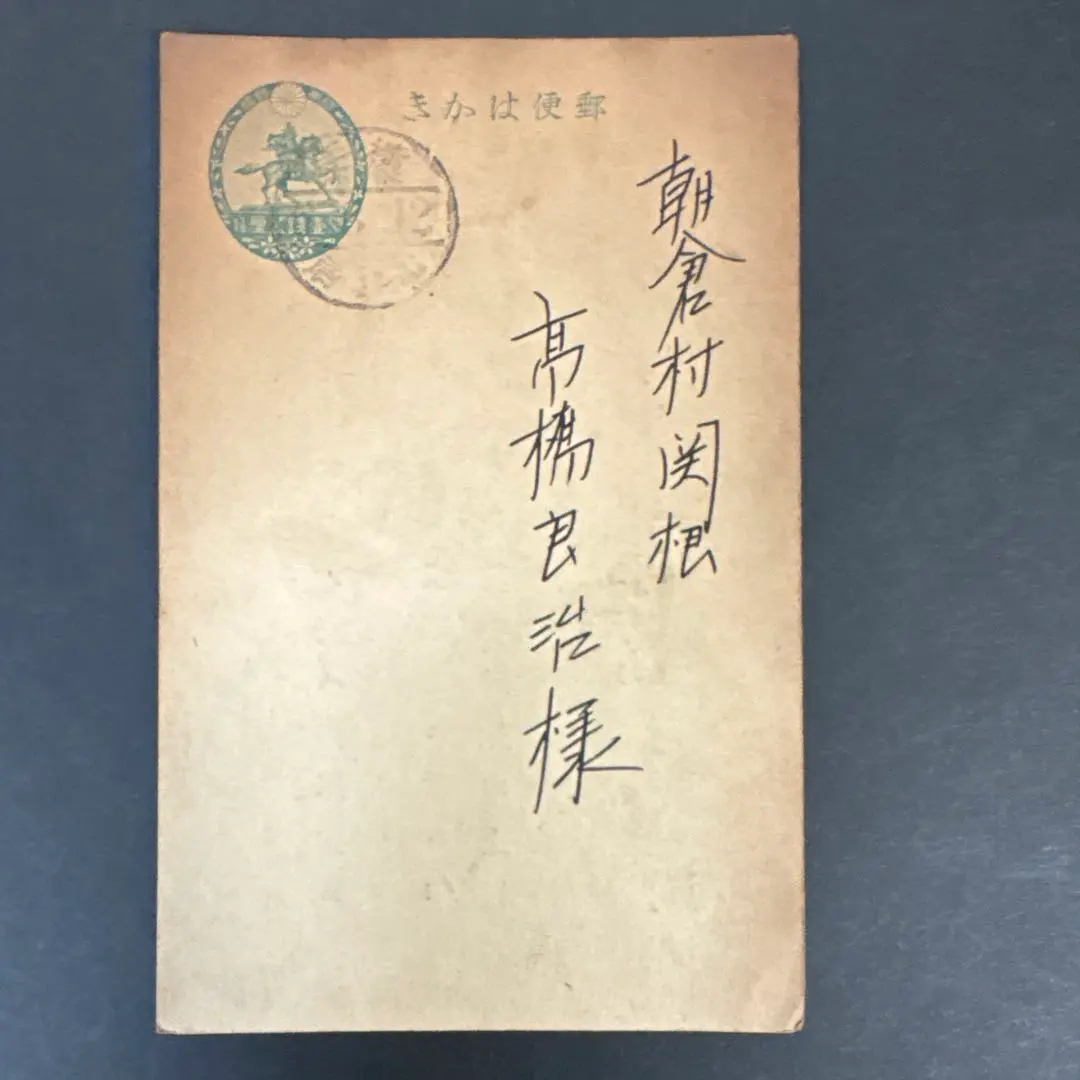 郵便はかき
朝倉村関根
髙橋良治様